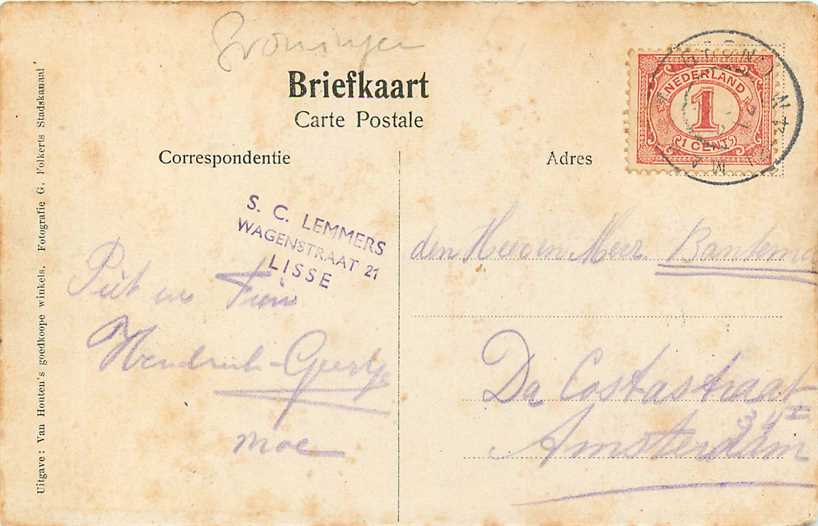 Groningen
Briefkaart
Carte Postale
Correspondentie
Adres
NEDERLAND
1
(1 CENT)
S. C. LEMMERS
WAGENSTRAAT 21
LISSE
Piet en
Hendrik-Geertje
Moe
den Heer en
Da Costastraat
Amsterdam
Uitgave: Van Houten's goedkoope winkels. Fotografie G. Folkerts Stadskanaal